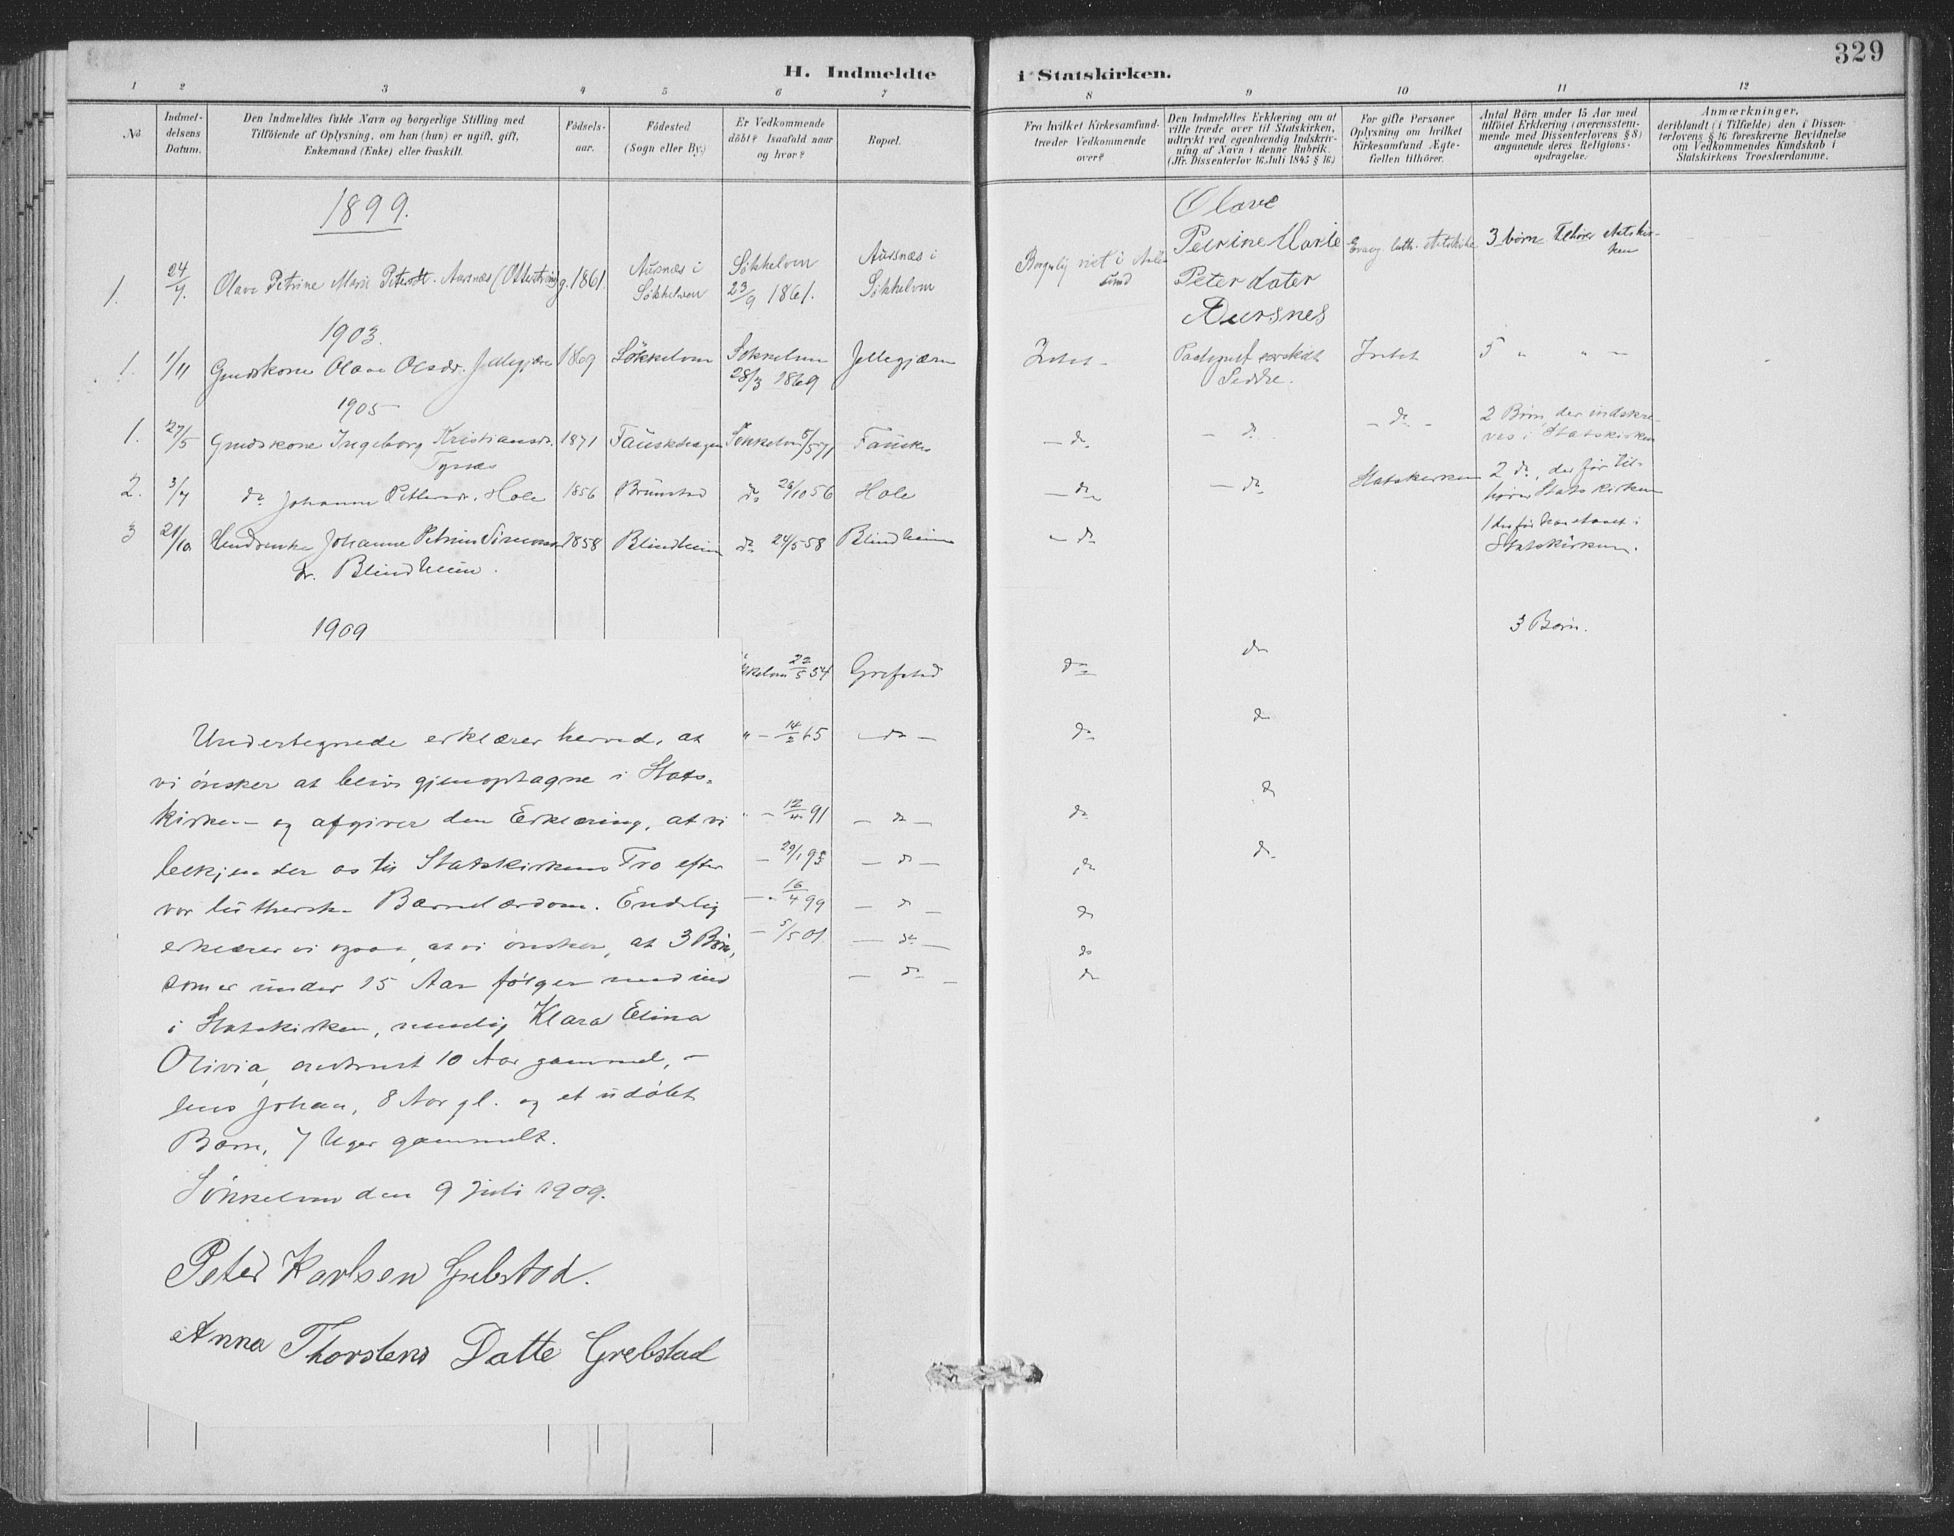 329
H. Indmeldte i Statskirken.
1 2 3 4 5 6 7 8 9 10 11 12
No.
Indmeldelsens Datum.
Den Indmeldtes fulde Navn og borgerlige Stilling med
Tilföiende af Oplysning, om han (hun) er ugift, gift,
Enkemand (Enke) eller fraskilt.
Födselsaar.
Födested
(Sogn eller By.)
Er Vedkommende
döbt? Isaafald naar
og hvor?
Bopæl.
Fra hvilket Kirkesamfund
træder Vedkommende
over?
Den Indmeldtes Erklæring om at
ville træde over til Statskirken,
udtrykt ved egenhændig Indskriv-
ning af Navn i denne Rubrik.
(Jfr. Dissenterlov 16 Juli 1845 § 16.)
For gifte Personer
Oplysning om hvilket
Kirkesamfund Ægte-
fællen tilhörer.
Antal Börn under 15 Aar med
tilföiet Erklæring (overensstem-
mende med Dissenterlovens § 8)
angaaende deres Religions-
opdragelse.
Anmærkninger,
deriblandt (i Tilfælde) den i Dissen-
terlovens § 16 foreskrevne Bevidnelse
om Vedkommendes Kundskab i
Statskirkens Troeslærdomme.
1899.
1. 24/7 Olave Petrine Marie Petersdtr. Aursnæs g. 1861. Aursnæs i Søkkelven Søkkelven 23/9 1861. Aursnæs i Søkkelven
Olave
Petrine Marie
Peter dater
Aursnes
3 børn tilhører statskirken
1903.
1. 1/11 Gmdskone Olave Olsdr. Jellegjære 1869 Søkkelven Søkkelven 28/3 1869 Jellegjære Intet Intet 5 " " "
1905
1. 27/5 Gmdskone Ingeborg Kristiansdr. Tynæs 1871 Fauskhaugen Søkkelven 5/5 71 Fauske - do - do - do - 2 Børn der indskre-
ves i Statskirken
2. 3/7 do Johanne Pettersdr. Hole 1856 Brunstad do 26/10 56 Hole - do - do Statskirken 2 do, der før til-
hører Statskirken
3 21/10 Johanne Petrine Simons-
dr. Blindheim. 1858 Blindheim do 24/5 58 Blindheim - do
Statskirken.
1909
3 Børn.
22/5 54 Grebstad do do
" - 14/2 65 - do - do do
- 12/4 91 - do - do do
- 29/1 95 - do - do do
- 16/4 99 - do - do
- 5/5 01 - do - do
- do - do
Undertegnede erklærer herved, at
vi ønsker at blive gjenoptagne i Stats-
kirken - og afgiver den Erklæring, at vi
bekjender os til Statskirkens Tro efter
vor lutherske Barnelærdom. Endelig
erklærer vi ogsaa, at vi ønsker, at 3 Børn,
som er under 15 Aar følger med ind
i Statskirken, nemlig Klara Elina
Olivia, omtrent 10 Aar gammel, -
Jens Johan, 8 Aar gl. og et udøbt
Barn, 7 Uger gammelt.
Søkkelven den 9 Juli 1909.
Peter Karlsen Grebstad.
Anna Thorstens Datte Grebstad